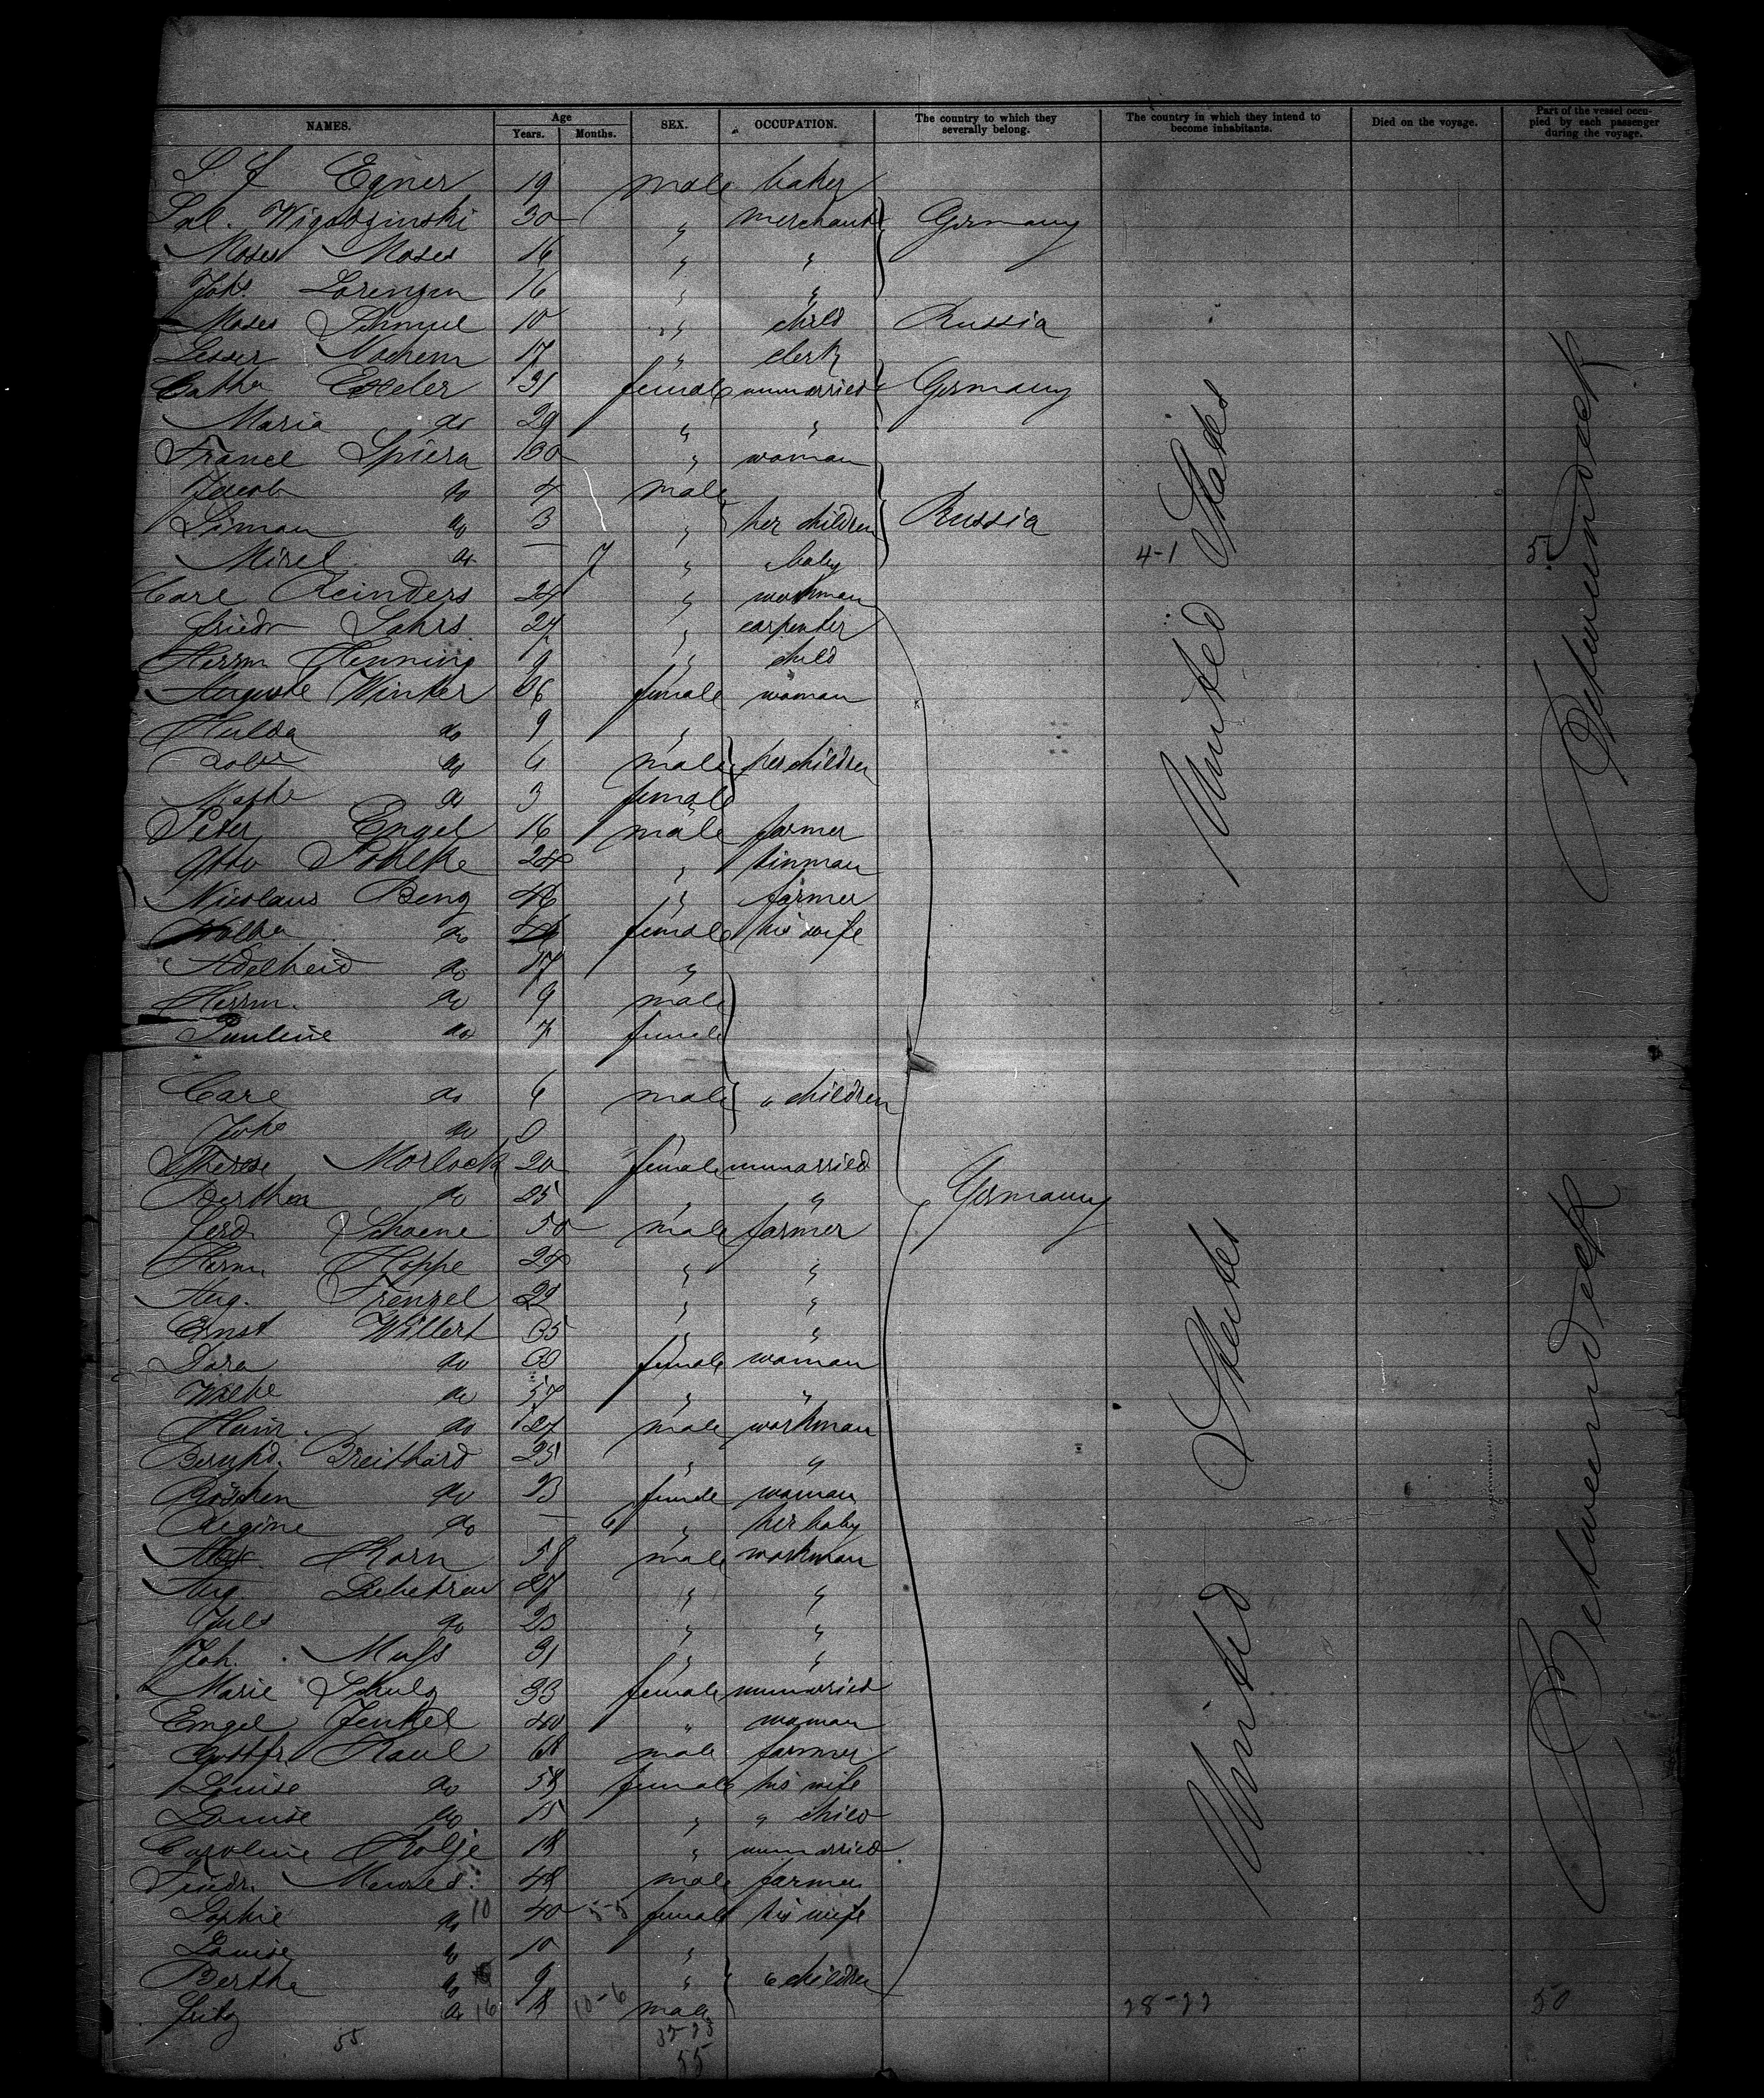 NAMES. Age Years. Months. SEX. OCCUPATION. The country to which they severally belong. The country in which they intend to become inhabitants. Died on the voyage. Part of the vessel occupied by each passenger during the voyage.
Egner 19 male baker
Sal. Wigodzinski 30 " merchant Germany
Moses Moses 16 " "
Joh. Lorenzen 16 " "
Moses Schmul 10 " child Russia
Lesser Nachem 17 " clerk
Catha Exeler 31 female unmarried Germany
Maria do 29 " "
Spiera 30 " woman
Jacob do 4 male
Siman do 3 " her children Russia
Mirel do — 7 " " baby 4-1
Carl Reinders 24 " workman
Friedr Sahrs 27 " carpenter
Herrm Henning 9 " child
Auguste Winter 36 female woman United States
Hulda do 9 "
Robt do 6 male her children
do 3 female
Peter Engel 16 male farmer
Otto Pohlke 24 " tinman
Nicolaus Beng 46 " farmer
do female his wife
Adelheid do 17 "
Herrm. do 9 male
Pauline do 7 female
Carl do 6 male " children
Joh do
Therese Morlock 20 female unmarried
Bertha do 25 " " Germany
Ferd. Schoene 50 male farmer
Herm Hoppe 24 " "
Aug. Frenzel 29 " "
Ernst Willert 35 " "
Dora do female woman
do 57 " "
Heinr. do 27 male workman
Bernhd. Breithard 25 " "
Röschen do 23 female woman
Regine do — 6 " her baby
Korn 58 male workman
Aug. 27 " "
Juls do 23 " "
Joh. Mass 31 " "
Marie Schulz 33 female unmarried
Engel Jenkel 40 " woman
Gottfr. Kaul 68 male farmer
Louise do 58 female his wife
Louise do 15 " " child
Caroline Kolje 18 " unmarried
Friedr. Mewes 48 male farmer
Sophie do 10 40 5-5 female his wife
Louise do 10 "
Berthe do 9 " " children
Fritz do 16 8 10-6 male 28-22 50
55 32-23
55
United States
Between deck
Between deck